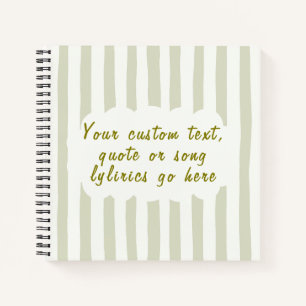 Your custom text,
quote or song
lylirics go here